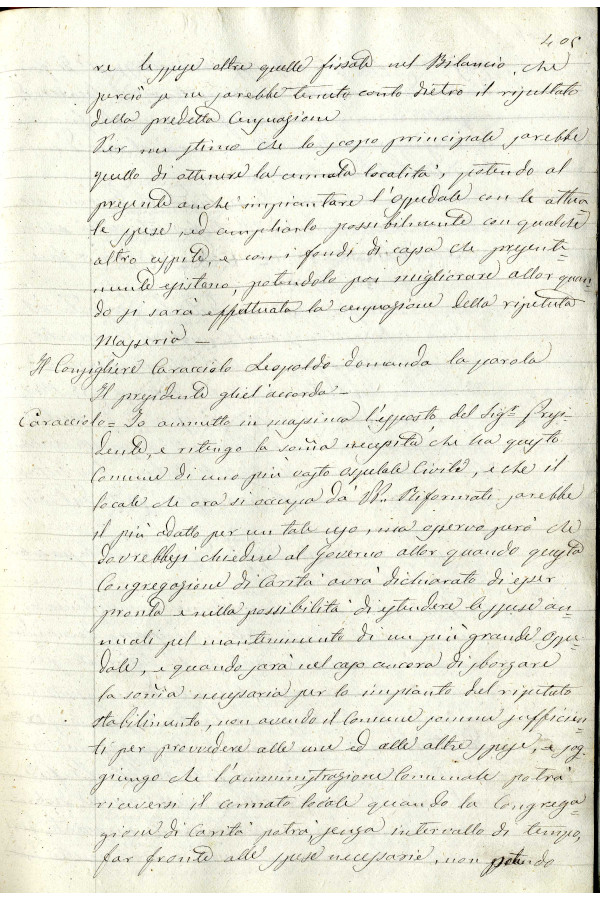 405
re le spese oltre quelle fissate nel Bilancio, che
perciò se ne sarebbe tenuto conto dietro il risultato
della predetta Censuazione
Per me stimo che lo scopo principale sarebbe
quello di ottenere la cennata località, potendo al
presente anche simpiantare l'Ospedale con le attua
le spese, ed ampliarlo possibilmente con qualche
altro cespite, e con i fondi di cassa che presente=
mente esistono, potendolo poi migliorare allor quan=
do si sarà effettuata la censuazione della ripetuta
Masseria —
Il Consigliere Caracciolo Leopoldo domanda la parola
Il presidente gliel'accorda —
Caracciolo = Io ammetto in massima l'esposto del Sigr. Presi=
dente, e ritengo la somma necessità che ha questo
Comune di uno più vasto ospedale Civile, e che il
locale che ora si occupa da' PP. Riformati sarebbe
il più adatto per un tale uso, ma osservo però che
dovrebbesi chiedere al Governo allor quando questa
Congregazione di Carità avrà dichiarato di esser
pronta e nella possibilità di estendere le spese an=
nuali pel mantenimento di un più grande Ospe=
dale, e quando sarà nel caso ancora di sborzare
la somma necessaria per lo impianto del ripetuto
stabilimento, non avendo il Comune somme sufficien=
ti per provvedere alle une ed alle altre spese, e sog=
giungo che l'amministrazione Comunale potrà
riceversi il cennato locale quando la Congrega=
zione di Carità potrà, senza intervallo di tempo,
far fronte alle spese necessarie, non potendo